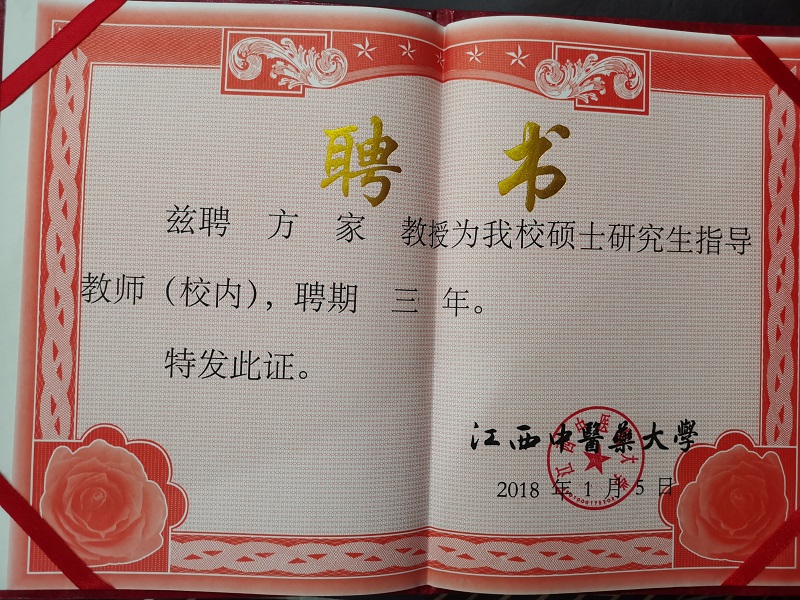 聘 书
兹聘 方 家 教授为我校硕士研究生指导
教师（校内），聘期 三 年。
特发此证。
江西中醫藥大學
2018 年 1 月 5 日